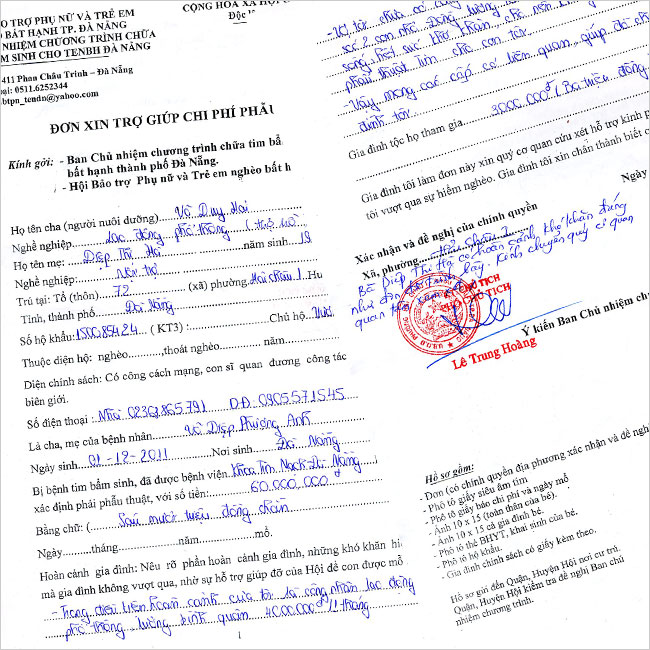 O TRỢ PHỤ NỮ VÀ TRẺ EM
O BẤT HẠNH TP. ĐÀ NẴNG
NHIỆM CHƯƠNG TRÌNH CHỮA
M SINH CHO TENBH ĐÀ NẴNG
411 Phan Châu Trinh – Đà Nẵng
oại: 0511.6252344
btpn_tendn@yahoo.com
CỘNG HÒA XÃ HỘI
Độc
ĐƠN XIN TRỢ GIÚP CHI PHÍ PHẪ
Kính gởi: - Ban Chủ nhiệm chương trình chữa tim bẩ
bất hạnh thành phố Đà Nẵng.
- Hội Bảo trợ Phụ nữ và Trẻ em nghèo bất h
Họ tên cha (người nuôi dưỡng) Võ Duy Hai
Nghề nghiệp Lao động phổ thông (thợ hồ
Họ tên mẹ: Diệp Thị Hà năm sinh 19
Nghề nghiệp: Nội trợ
Trú tại: Tổ (thôn) 72 (xã) phường Hải Châu 1. Hu
Tỉnh, thành phố Đà Nẵng
Số hộ khẩu: 150085424 ( KT3) : Chủ hộ
Thuộc diện hộ: nghèo, thoát nghèo năm
Diện chính sách: Có công cách mạng, con sĩ quan đương công tác
biên giới.
Số điện thoại : Nhà 02301.865.791 DĐ: 0905571545
Là cha, mẹ của bệnh nhân Võ Diệp Phương Anh
Ngày sinh 01-12-2011 Nơi sinh Đà Nẵng
Bị bệnh tim bẩm sinh, đã được bệnh viện Khoa Tim Mạch Đà Nẵng
xác định phải phẫu thuật, với số tiền: 60.000.000đ
Bằng chữ: ( Sáu mươi triệu đồng chẵn
Ngày tháng năm mổ.
Hoàn cảnh gia đình: Nêu rõ phần hoàn cảnh gia đình, những khó khăn hi
mà gia đình không vượt qua, nhờ sự hỗ trợ giúp đỡ của Hội để con được mổ
- Trong điều kiện hoàn cảnh của tôi là công nhân lao động
phổ thông lương bình quân 4000.000đ/1 tháng
1
sống hết sức khó khăn cho nên
phẫu thuật tim cho con tôi
- Vậy mong các cấp có liên quan, giúp đỡ
đình tôi.
Gia đình tộc họ tham gia 3000.000đ (Ba triệu đồng
Gia đình tôi làm đơn này xin quý cơ quan cứu xét hỗ trợ kinh p
tôi vượt qua sự hiểm nghèo. Gia đình tôi xin chân thành biết
Ngày
Xác nhận và đề nghị của chính quyền
Xã, phường Hải Châu I
Bé Diệp Thị Hà có hoàn cảnh khó khăn đúng
như đơn đã trình bày. Kính chuyển quý cơ quan
quan tâm
CHỦ TỊCH
PHÓ CHỦ TỊCH
Lê Trung Hoàng
Ý kiến Ban Chủ nhiệm chư
Hồ sơ gồm:
- Đơn (có chính quyền địa phương xác nhận và đề nghị
- Phô tô giấy siêu âm tim
- Phô tô giấy báo chi phí và ngày mổ
- Ảnh 10 x 15 (toàn thân của bé).
- Ảnh 10 x 15 cả gia đình bé.
- Phô tô thẻ BHYT, khai sinh của bé.
- Phô tô hộ khẩu.
- Gia đình chính sách có giấy kèm theo.
Hồ sơ gửi đến Quận, Huyện Hội nơi cư trú.
Quận, Huyện Hội kiểm tra đề nghị Ban chủ
nhiệm chương trình.